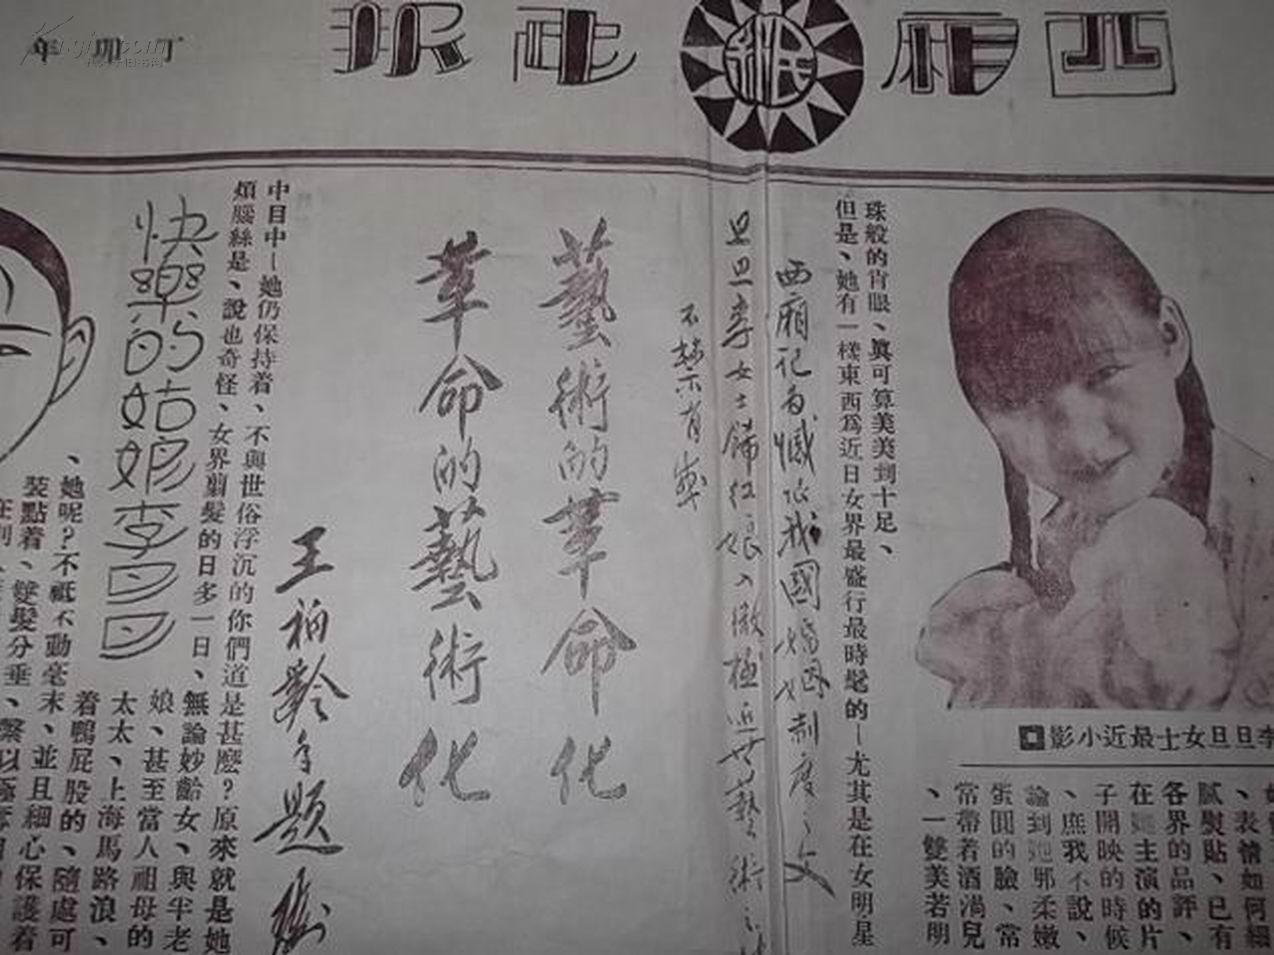 丁卯年
民新
西廂
李旦旦女士最近小影
表情如何細
膩熨貼、已有
各界的品評、
在她主演的片
子開映的時候
、庶我不說、
論到她那柔嫩
蛋圓的臉、常
常帶着酒渦兒
、一雙美若明
珠般的肖眼、眞可算美美到十足、
但是、她有一樣東西爲近日女界最盛行最時髦的—尤其是在女明星
西廂記為懺心我國婚姻制度之文
旦旦李女士飾紅娘入微極近世藝術之
不禁有感
藝術的革命化
革命的藝術化
王柏齡手題
中目中—她仍保持着、不與世俗浮沉的你們道是甚麽?原來就是她
煩腦絲是、說也奇怪、女界翦髮的日多一日、無論妙齡女、與半老
快樂的姑娘李旦旦
娘、甚至當人祖母的
太太、上海馬路浪、
着鴨屁股的、隨處可
、她呢?不祇不動毫末、並且細心保護着
裝點着、雙髮分垂、繫以